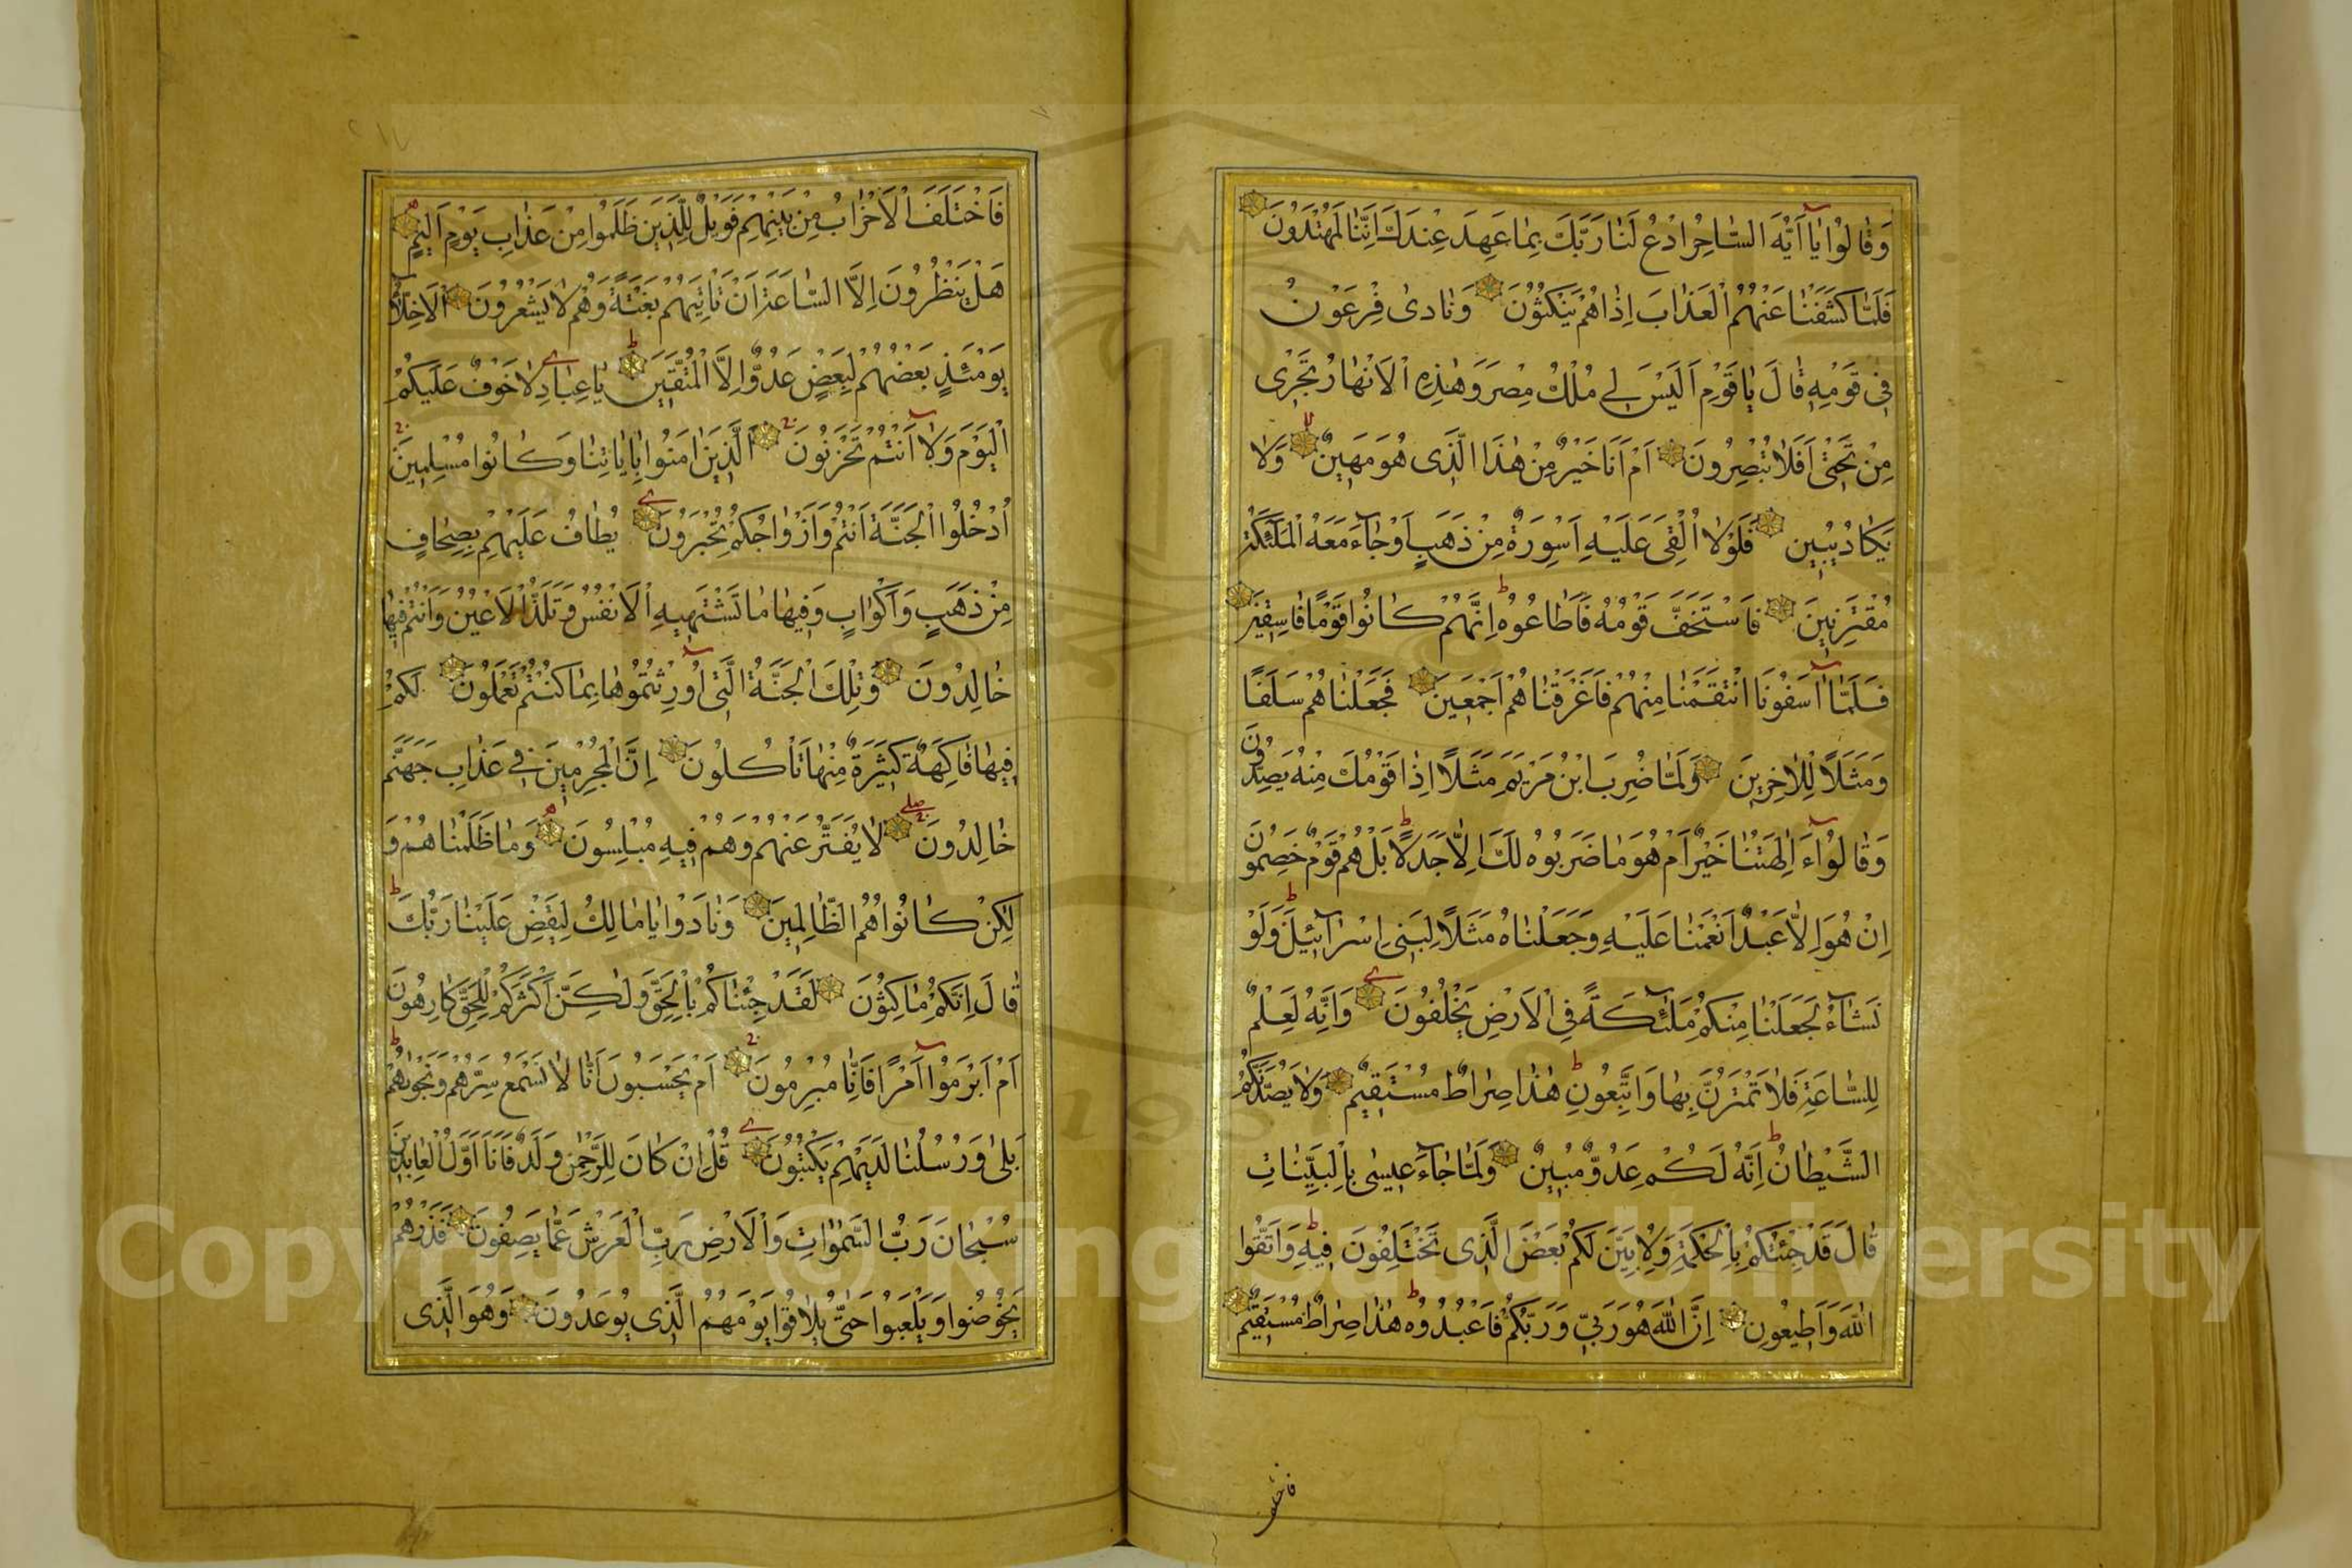 وَقَالُوا يَا أَيُّهَ السَّاحِرُ ادْعُ لَنَا رَبَّكَ بِمَا عَهِدَ عِنْدَكَ اِنَّنَا لَمُهْتَدُونَ
فَلَمَّا كَشَفْنَا عَنْهُمُ الْعَذَابَ اِذَا هُمْ يَنْكُثُونَ وَنَادٰى فِرْعَوْنُ
فِى قَوْمِهِ قَالَ يَا قَوْمِ اَلَيْسَ لِى مُلْكُ مِصْرَ وَهٰذِهِ الْاَنْهَارُ تَجْرِى
مِنْ تَحْتِى اَفَلَا تُبْصِرُونَ اَمْ اَنَا خَيْرٌ مِنْ هٰذَا الَّذِى هُوَ مَهِينٌ وَلَا
يَكَادُ يُبِينُ فَلَوْلَا اُلْقِىَ عَلَيْهِ اَسْوِرَةٌ مِنْ ذَهَبٍ اَوْ جَاءَ مَعَهُ الْمَلٰئِكَةُ
مُقْتَرِنِينَ فَاسْتَخَفَّ قَوْمَهُ فَاَطَاعُوهُ اِنَّهُمْ كَانُوا قَوْمًا فَاسِقِينَ
فَلَمَّا اٰسَفُونَا انْتَقَمْنَا مِنْهُمْ فَاَغْرَقْنَاهُمْ اَجْمَعِينَ فَجَعَلْنَاهُمْ سَلَفًا
وَمَثَلًا لِلْاٰخِرِينَ وَلَمَّا ضُرِبَ ابْنُ مَرْيَمَ مَثَلًا اِذَا قَوْمُكَ مِنْهُ يَصِدُّونَ
وَقَالُوا ءَاٰلِهَتُنَا خَيْرٌ اَمْ هُوَ مَا ضَرَبُوهُ لَكَ اِلَّا جَدَلًا بَلْ هُمْ قَوْمٌ خَصِمُونَ
اِنْ هُوَ اِلَّا عَبْدٌ اَنْعَمْنَا عَلَيْهِ وَجَعَلْنَاهُ مَثَلًا لِبَنِى اِسْرَائِيلَ وَلَوْ
نَشَاءُ لَجَعَلْنَا مِنْكُمْ مَلٰئِكَةً فِى الْاَرْضِ يَخْلُفُونَ وَاِنَّهُ لَعِلْمٌ
لِلسَّاعَةِ فَلَا تَمْتَرُنَّ بِهَا وَاتَّبِعُونِ هٰذَا صِرَاطٌ مُسْتَقِيمٌ وَلَا يَصُدَّنَّكُمُ
الشَّيْطَانُ اِنَّهُ لَكُمْ عَدُوٌّ مُبِينٌ وَلَمَّا جَاءَ عِيسٰى بِالْبَيِّنَاتِ
قَالَ قَدْ جِئْتُكُمْ بِالْحِكْمَةِ وَلِاُبَيِّنَ لَكُمْ بَعْضَ الَّذِى تَخْتَلِفُونَ فِيهِ وَاتَّقُوا
اللّٰهَ وَاَطِيعُونِ اِنَّ اللّٰهَ هُوَ رَبِّى وَرَبُّكُمْ فَاعْبُدُوهُ هٰذَا صِرَاطٌ مُسْتَقِيمٌ
فاختلف
فَاخْتَلَفَ الْاَحْزَابُ مِنْ بَيْنِهِمْ فَوَيْلٌ لِلَّذِينَ ظَلَمُوا مِنْ عَذَابِ يَوْمٍ اَلِيمٍ
هَلْ يَنْظُرُونَ اِلَّا السَّاعَةَ اَنْ تَاْتِيَهُمْ بَغْتَةً وَهُمْ لَا يَشْعُرُونَ اَلْاَخِلَّاءُ
يَوْمَئِذٍ بَعْضُهُمْ لِبَعْضٍ عَدُوٌّ اِلَّا الْمُتَّقِينَ يَا عِبَادِ لَا خَوْفٌ عَلَيْكُمُ
الْيَوْمَ وَلَا اَنْتُمْ تَحْزَنُونَ اَلَّذِينَ اٰمَنُوا بِاٰيَاتِنَا وَكَانُوا مُسْلِمِينَ
اُدْخُلُوا الْجَنَّةَ اَنْتُمْ وَاَزْوَاجُكُمْ تُحْبَرُونَ يُطَافُ عَلَيْهِمْ بِصِحَافٍ
مِنْ ذَهَبٍ وَاَكْوَابٍ وَفِيهَا مَا تَشْتَهِيهِ الْاَنْفُسُ وَتَلَذُّ الْاَعْيُنُ وَاَنْتُمْ فِيهَا
خَالِدُونَ وَتِلْكَ الْجَنَّةُ الَّتِى اُورِثْتُمُوهَا بِمَا كُنْتُمْ تَعْمَلُونَ لَكُمْ
فِيهَا فَاكِهَةٌ كَثِيرَةٌ مِنْهَا تَاْكُلُونَ اِنَّ الْمُجْرِمِينَ فِى عَذَابِ جَهَنَّمَ
خَالِدُونَ لَا يُفَتَّرُ عَنْهُمْ وَهُمْ فِيهِ مُبْلِسُونَ وَمَا ظَلَمْنَاهُمْ وَ
لٰكِنْ كَانُوا هُمُ الظَّالِمِينَ وَنَادَوْا يَا مَالِكُ لِيَقْضِ عَلَيْنَا رَبُّكَ
قَالَ اِنَّكُمْ مَاكِثُونَ لَقَدْ جِئْنَاكُمْ بِالْحَقِّ وَلٰكِنَّ اَكْثَرَكُمْ لِلْحَقِّ كَارِهُونَ
اَمْ اَبْرَمُوا اَمْرًا فَاِنَّا مُبْرِمُونَ اَمْ يَحْسَبُونَ اَنَّا لَا نَسْمَعُ سِرَّهُمْ وَنَجْوٰيهُمْ
بَلٰى وَرُسُلُنَا لَدَيْهِمْ يَكْتُبُونَ قُلْ اِنْ كَانَ لِلرَّحْمٰنِ وَلَدٌ فَاَنَا اَوَّلُ الْعَابِدِينَ
سُبْحَانَ رَبِّ السَّمٰوَاتِ وَالْاَرْضِ رَبِّ الْعَرْشِ عَمَّا يَصِفُونَ فَذَرْهُمْ
يَخُوضُوا وَيَلْعَبُوا حَتّٰى يُلَاقُوا يَوْمَهُمُ الَّذِى يُوعَدُونَ وَهُوَ الَّذِى
Copyright © King Saud University
1957